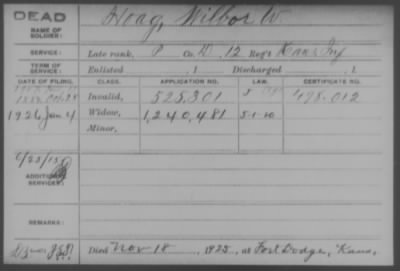 DEAD
NAME OF SOLDIER: Hoag, Wilbor W.
SERVICE: Late rank, P Co. D, 12 Reg't Kans Inf
TERM OF SERVICE: Enlisted , 1 Discharged , 1
DATE OF FILING. CLASS. APPLICATION NO. LAW. CERTIFICATE NO.
Invalid, 525,301 498.012
1926 Jan 4 Widow, 1,240,481 5-1-20
Minor,
6/25/15
ADDITIONAL SERVICES:
REMARKS:
Died Nov 18, 1925, at Fort Dodge, Kans,